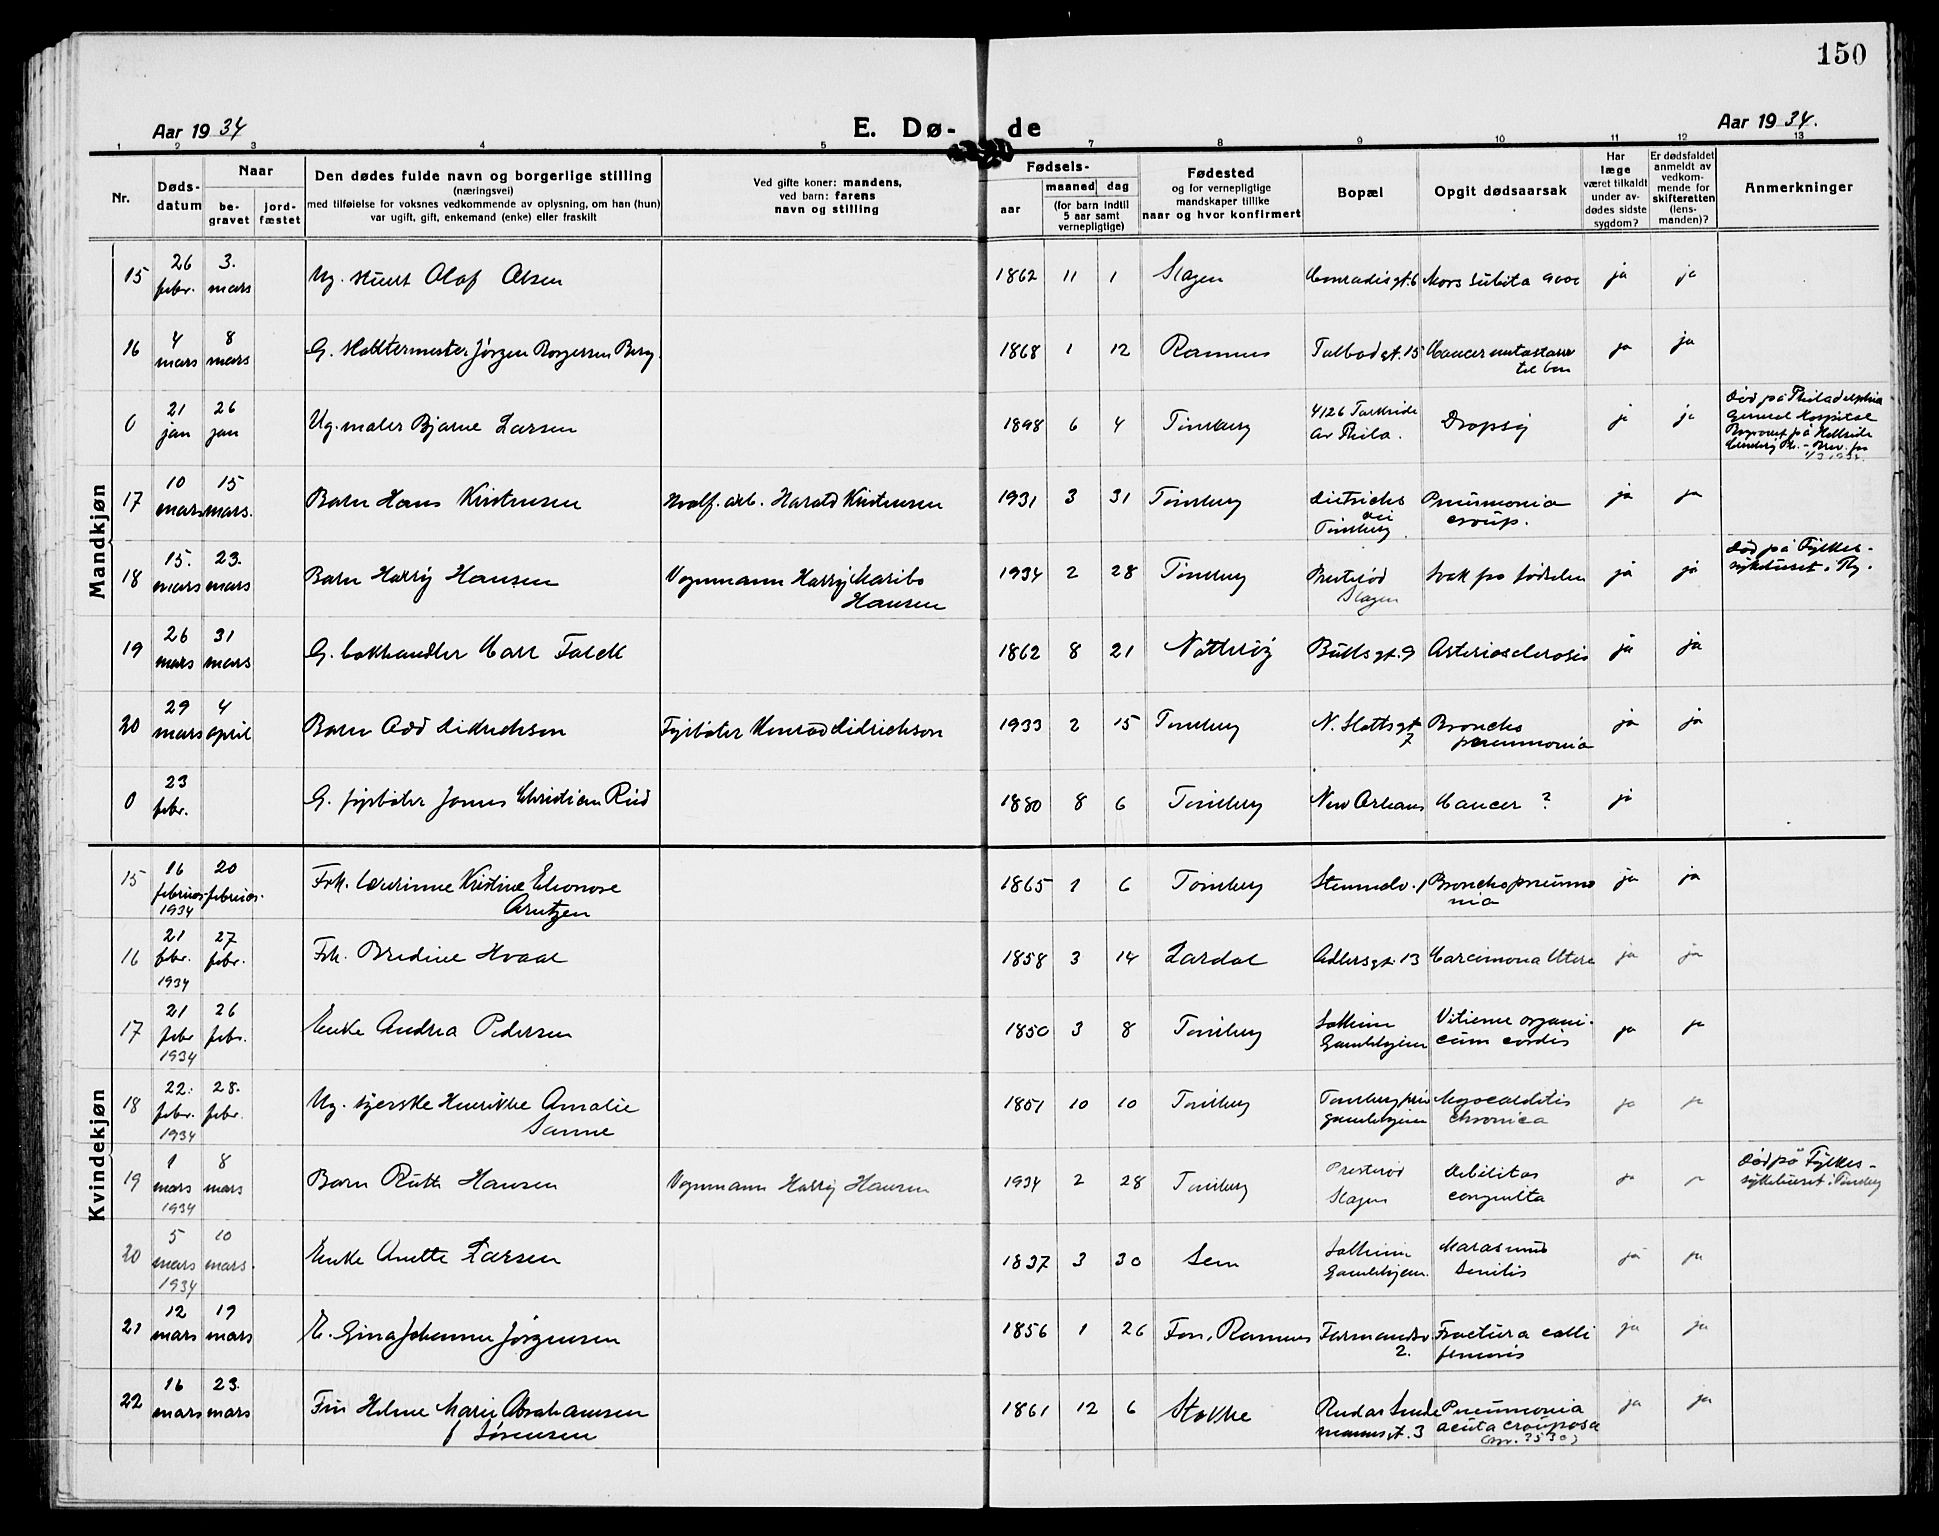 150
Aar 1934
E. Dø-
de
Aar 1934.
1 2 3 4 5 7 8 9 10 11 12 13
Nr.
Døds-
datum
Naar
be-
gravet
jord-
fæstet
Den dødes fulde navn og borgerlige stilling
(næringsvei)
med tilføielse for voksnes vedkommende av oplysning, om han (hun)
var ugift, gift, enkemand (enke) eller fraskilt
Ved gifte koner: mandens,
ved barn: farens
navn og stilling
Fødsels-
aar
maaned
dag
(for barn indtil
5 aar samt
vernepligtige)
Fødested
og for vernepligtige
mandskaper tillike
naar og hvor konfirmert
Bopæl
Opgit dødsaarsak
Har
læge
været tilkaldt
under av-
dødes sidste
sygdom?
Er dødsfaldet
anmeldt av
vedkom-
mende for
skifteretten
(lens-
manden)?
Anmerkninger
Mandkjøn
15 26 febr. 3. mars Ug. Olaf Olsen 1862 11 1 Slagen Conradisgt. 6 Mors subita ja ja
16 4 mars 8 mars G. Jørgen Borgersen Berg 1868 1 12 Ramnes Tolbodgt. 15 Cancer ja ja
0 21 jan 26 jan Ug. maler Bjarne Larsen 1898 6 4 Tønsberg 4126 Parkside Av Phila. Dropsy ja ja Død på Philadelphia General Hospital
17 10 mars 15 mars. Barn Hans Kristensen Hvalf. arb. Harald Kristensen 1931 3 31 Tønsberg Dietrichs vei Tønsberg. Pneumonia croup. ja ja
18 15. mars 23. mars Barn Harry Hansen Vognmann Harry Maribo Hansen 1934 2 28 Tønsberg Presterød Slagen Svak fra fødselen ja ja Død på Fylkes-
sykehuset i Tbg.
19 26 mars 31 mars G. bokhandler Carl Falck 1862 8 21 Nøtterøy Bullsgt. 9 Arteriosclerosis ja ja
20 29 mars 4 april Barn Odd Didrichsen Fyrbøter Konrad Didrichson 1933 2 15 Tønsberg N. Slottsgt 7 Broncho pneumonia ja ja
0 23 febr. G. fyrbøter Jonas Christian Rud 1880 8 6 Tønsberg New Orleans Cancer ? ja
Kvindekjøn
15 16 februar 1934 20 februar. Frk. lærerinne Kristine Elionore Arntzen 1865 1 6 Tønsberg Bronchopneumonia ja ja
16 21 febr. 1934 27 febr. Frk. Bredine Hvaal 1858 3 14 Lardal Adlersgt. 13 Carcinoma Uteri ja ja
17 21 febr 1934 26 febr. Enke Andrea Pedersen 1850 3 8 Tønsberg Solheim Gamlehjem Vitium organi-
cum cordis ja ja
18 22. febr. 1934 28. febr. Ug. syerske Henrikke Amalie Sanne 1851 10 10 Tønsberg Tønsberg gamlehjem Myocarditis chronica ja ja
19 1 mars 1934 8 mars Barn Ruth Hansen Vognmann Harry Hansen 1934 2 28 Tønsberg Presterød Slagen Debilitas congenita ja ja Død på Fylkes-
sykehuset i Tønsberg
20 5 mars 1934 10 mars. Enke Anette Larsen 1837 3 30 Sem Solheim Gamlehjem. Marasmus senilis ja ja
21 12 mars 19 mars E. Gina Johanne Jørgensen 1856 1 26 Fon, Ramnes Farmandsv. 2. Fractura colli femoris ja ja
22 16 mars 23. mars Fru Helene Marie Abrahamsen f Sørensen 1861 12 6 Stokke 3 Pneumonia acuta crouposa ja ja